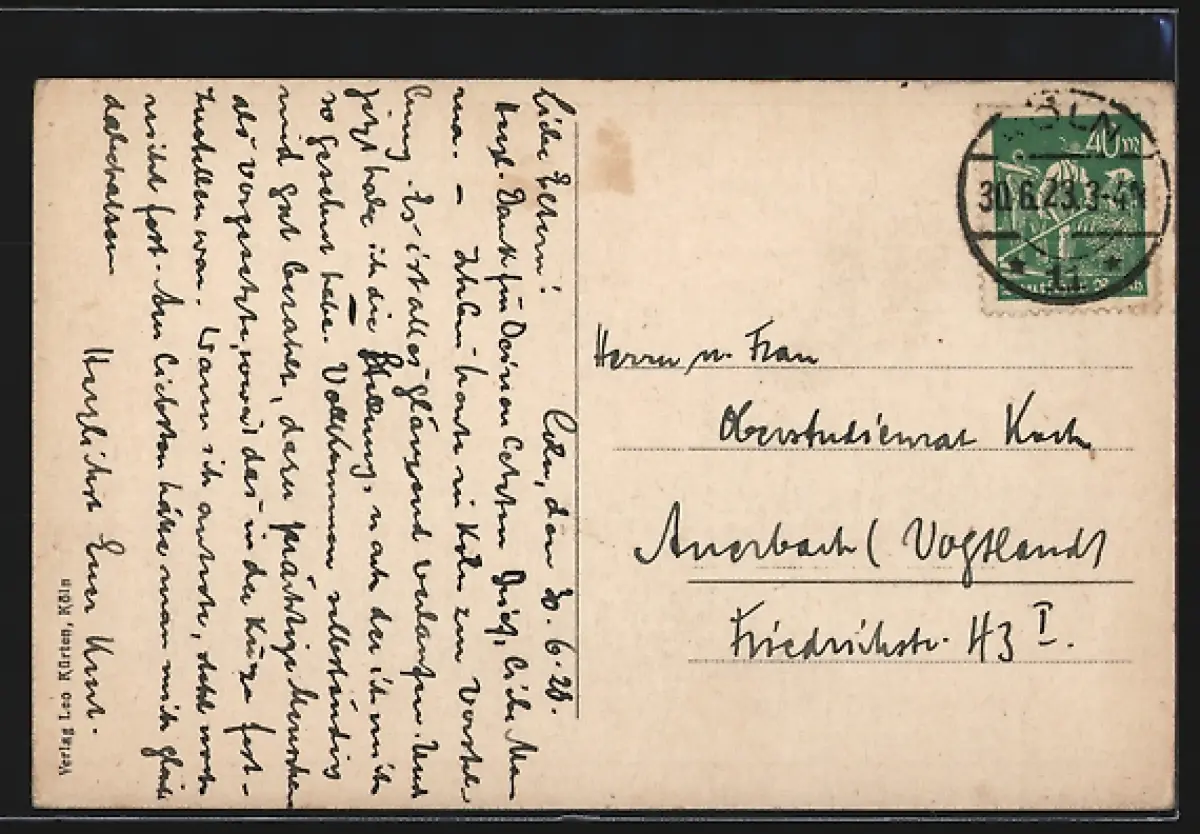 Cöln, den 30.6.23.
Liebe Eltern!
Herzl. Dank für Deinen lieben Brief, liebe Ma-
ma. – Ich bin heute in Köln zum Vorstel-
lung. Es ist alles glänzend verlaufen. Und
jetzt habe ich die Stellung, nach der ich mich
so gesehnt habe. Vollkommen selbständig
und gut bezahlt, dazu prächtige Menschen
als Vorgesetzte, soweit das in der Kürze fest-
zustellen war. Wann ich antrete, steht noch
nicht fest. Am liebsten hätte man mich gleich
dabehalten
Herzlichst Euer Knut.
Verlag Leo Kürten, Köln
KÖLN
30.6.23.3-4N
* 11 *
40 M
Herrn u. Frau
Oberstudienrat Koch
Auerbach (Vogtland)
Friedrichstr. 43 I.